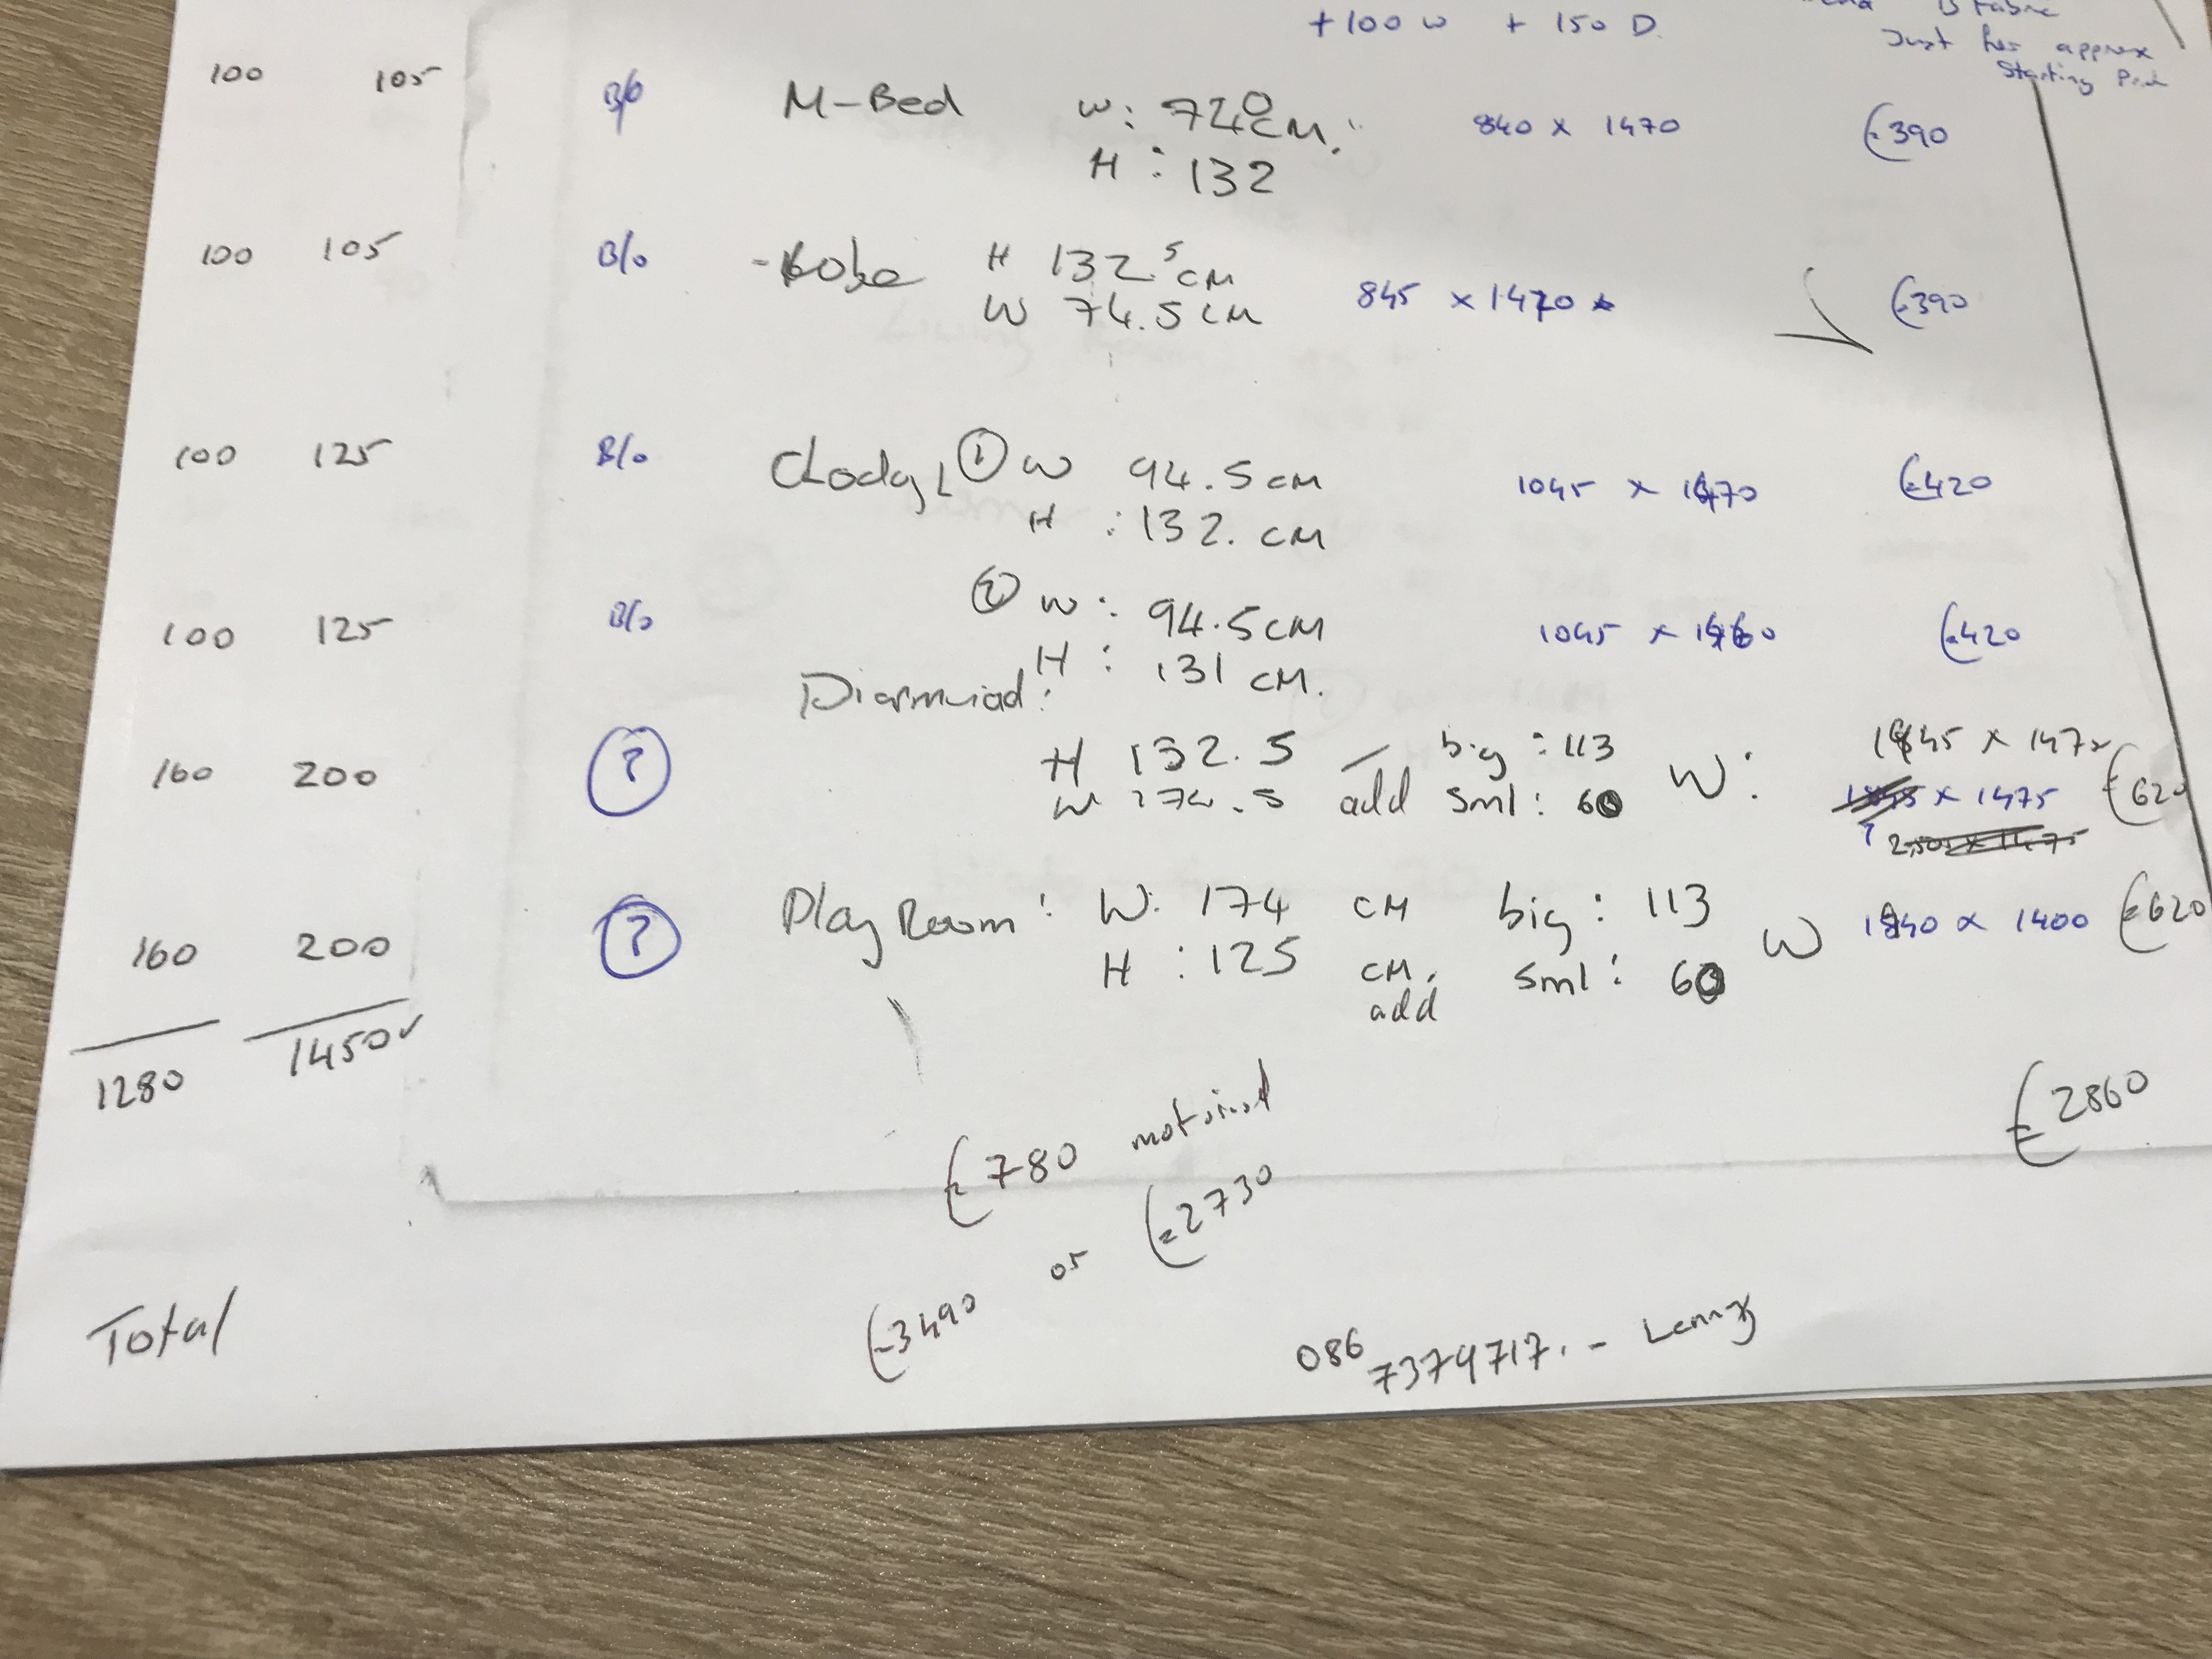 +100 w + 150 D.
B Fabric
Just for approx
Starting
100 105 B/o M-Bed W: 74cm. 840 x 1470 €390
H : 132
100 105 B/o H 132.5 cm
W 74.5 cm 845 x 1470 €390
100 125 B/o ① W 94.5 cm 1045 x 1470 €420
H : 132. cm
100 125 B/o ② W: 94.5cm 1045 x 1460 €420
H : 131 cm.
Diarmuid:
160 200 ? H 132.5 big : 113 W: 1845 x 1475
W 174.5 add sml : 60 x 1475 €620
?
160 200 ? Play Room: W. 174 cm big : 113 W 1840 x 1400 €620
H : 125 cm. sml : 60
add
1280 1450✓
€2860
€780
€3490 or €2730
Total
086 7374717. - Lenny